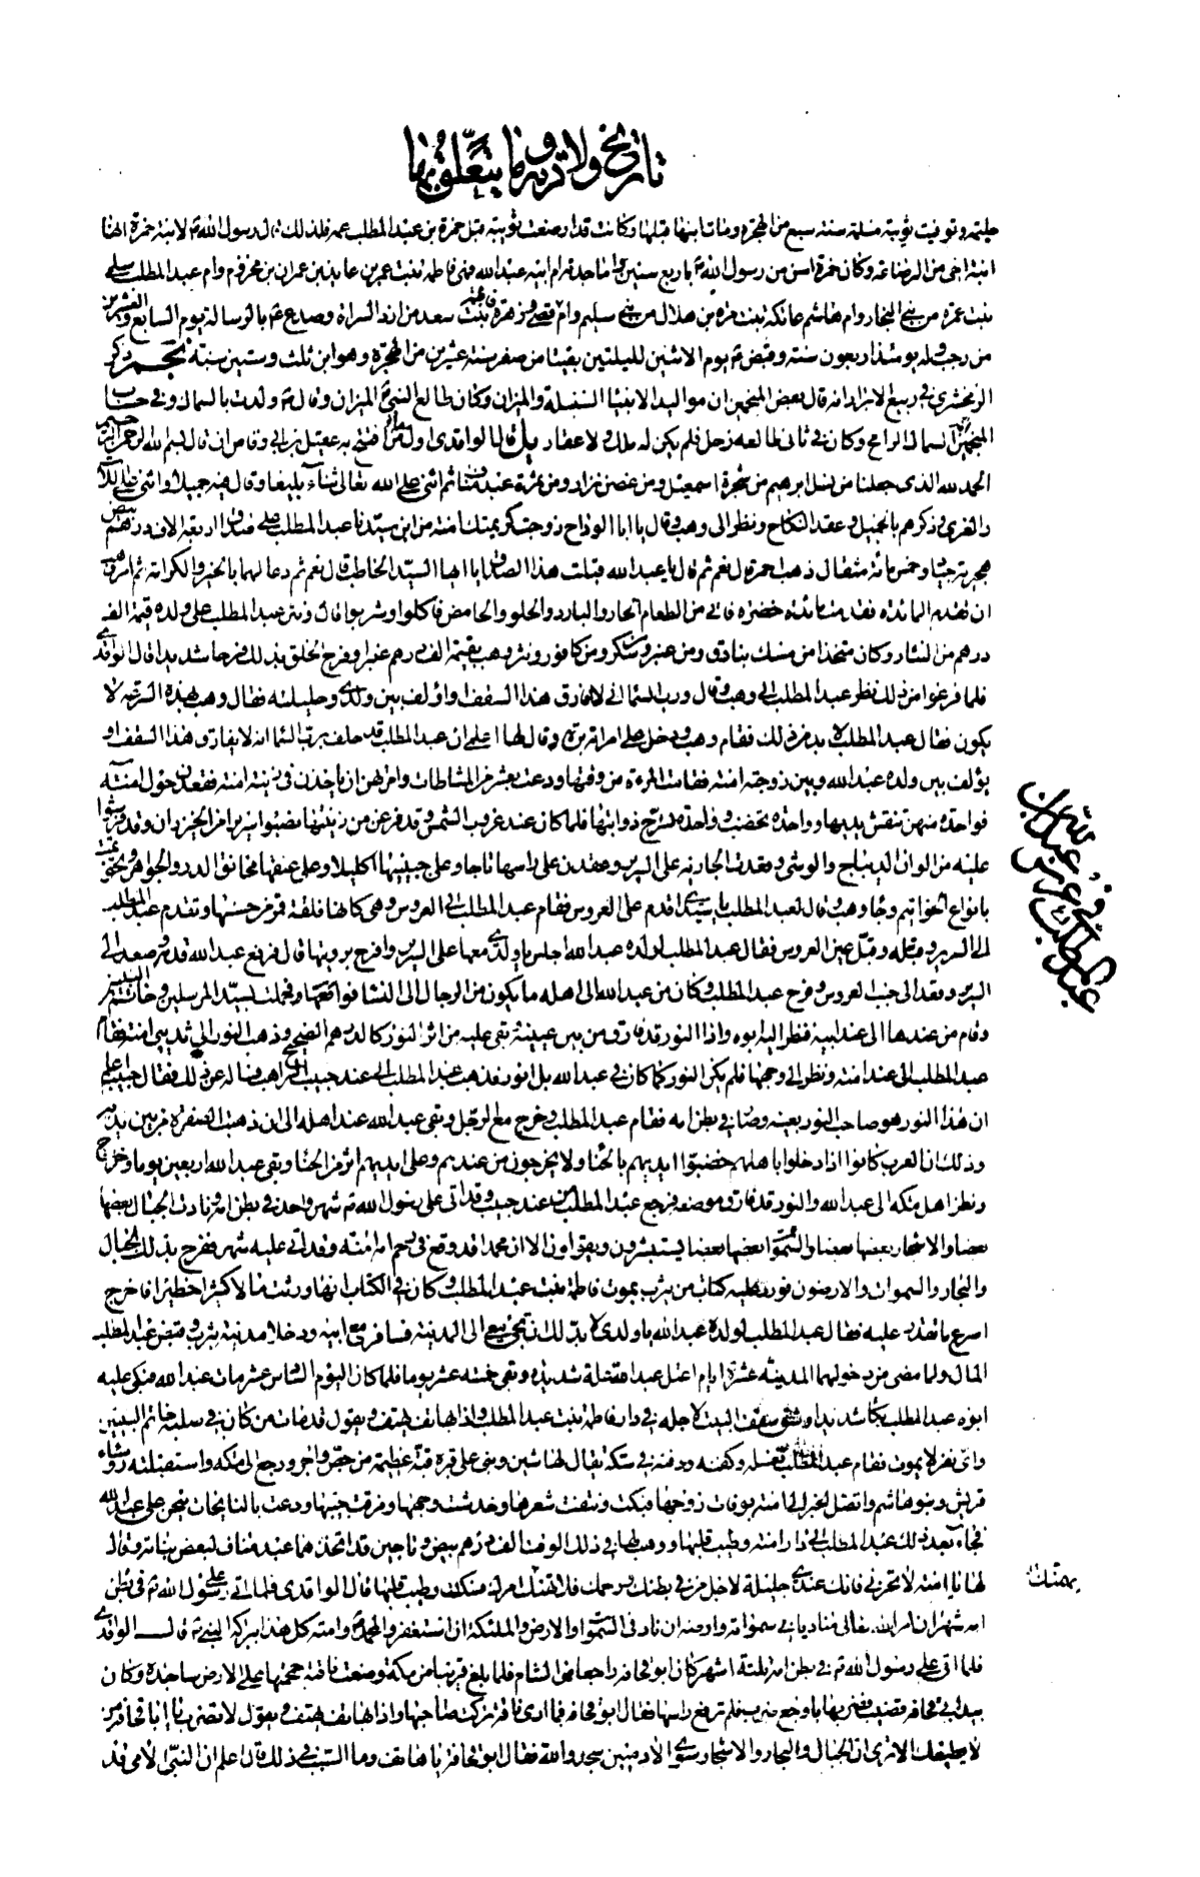 تاريخ ولادته وما يتعلق بها
حليمة وتوفيت ثويبة مسلمة سنة سبع من الهجرة ومات ابنها قبلها وكانت قد ارضعت ثويبة قبل حمزة بن عبد المطلب عمه فلذلك قال رسول الله ص لابنة حمزة انها
ابنة اخى من الرضاعة وكان حمزة اسن من رسول الله ص باربع سنين واما جدته ام ابيه عبد الله فهى فاطمة بنت عمرو بن عايذ بن عمران بن مخزوم وام عبد المطلب سلمى
بنت عمرو من بنى النجار وام هاشم عاتكة بنت مرة بن هلال من بنى سليم وام قصى وزهرة فاطمة بنت سعد من ازد السراة وصدع ص بالرسالة يوم السابع والعشرين
من رجب وله يومئذ اربعون سنة وقبض ص يوم الاثنين لليلتين بقيتا من صفر سنة عشر من الهجرة وهو ابن ثلث وستين سنة نجم ذكر
الزمخشرى فى ربيع الابرار انه قال بعض المنجمين ان مواليد الانبيا السنبلة والميزان وكان طالع النبى ص الميزان وقال ص ولدت بالسماك وفى حساب
المنجمين انه السماك الرامح وكان فى ثانى طالعه زحل فلم يكن له ملك ولا عقار يل قال الواقدى اول ما افتتح به عقيل بن ابى وقاص ان قال بسم الله الرحمن الرحيم
الحمد لله الذى جعلنا من نسل ابرهيم من شجرة اسمعيل ومن غصن نزار ومن ثمرة عبد مناف ثم اثنى على الله تعالى ثناء بليغا وقال فيه جميلا واثنى على اللات
والعزى وذكرهم بالجميل وعقد النكاح ونظر الى وهب وقال يا ابا الوداح زوجت كريمتك امنة من ابن سيدنا عبد المطلب على صداق اربعة الاف درهم بيض
هجرية جياد وخمسمائة مثقال ذهب احمر قال نعم ثم قال يا عبد الله قبلت هذا الصداق يا ايها السيد الخاطب قال نعم ثم دعا لهما بالخير والكرامة ثم امر وهب
ان تقدم المائدة فقدمت مائدة خضرة فاتى من الطعام الحار والبارد والحلو والحامض فاكلوا وشربوا قال ونثر عبد المطلب على ولده قيمة الف
درهم من النثار وكان متخذا من مسك بنادق ومن عنبر ومن سكر ومن كافور ونثر وهب بقيمة الف درهم عنبرا وفرح الخلق بذلك فرحا شديدا قال الواقدى
فلما فرغوا من ذلك نظر عبد المطلب الى وهب وقال ورب السماء انى لا افارق هذا السقف او اؤلف بين ولدى وحليلته فقال وهب بهذه السرعة لا
يكون فقال عبد المطلب لا بد من ذلك فقام وهب ودخل على امراته برة وقال لها اعلمى ان عبد المطلب قد حلف برب السماء انه لا يفارق هذا السقف او
يؤلف بين ولده عبد الله وبين زوجته امنة فقامت المرءة من وقتها ودعت بعشر من المشاطات وامرتهن ان ياخذن فى زينة امنة فقعدن حول امنة
فواحدة منهن تنقش يديها وواحدة تخضب وواحدة تسرح ذوائبها فلما كان عند غروب الشمس وقد فرغن من زينتها نصبوا سريرا من الخيزران وقد فرشوا
عليه من الوان الديباج والوشى وقعدت الجارية على السرير وعقدن على راسها تاجا وعلى جبينها اكليلا وعلى عنقها مخانق الدر والجواهر وتختمت
بانواع الخواتيم وجاء وهب وقال لعبد المطلب يا سيدى اقدم على العروس فقام عبد المطلب الى العروس وهى كانها فلقة قمر من حسنها وتقدم عبد المطلب
الى السرير وقبله وقبل عين العروس فقال عبد المطلب لولده عبد الله اجلس يا ولدى معها على السرير وافرح برويتها قال فرفع عبد الله قدمه وصعد الى
السرير وقعد الى جنب العروس وفرح عبد المطلب وكان من عبد الله الى اهله ما يكون من الرجال الى النساء فواقعها فحملت بسيد المرسلين وخاتم النبيين
وقام من عندها الى عند ابيه فنظر اليه ابوه واذا النور قد فارق من بين عينيه وبقى عليه من اثر النور كالدرهم الصحيح وذهب النور الى ثديى امنة فقام
عبد المطلب الى عند امنة ونظر الى وجهها فلم يكن النور كما كان فى عبد الله بل انور فذهب عبد المطلب الى عند حبيب الراهب فساله عن ذلك فقال حبيب اعلم
ان هذا النور هو صاحب النور بعينه وصار فى بطن امه فقام عبد المطلب وخرج مع الرجل وبقى عبد الله عند اهله الى ان ذهبت الصفرة من بين يديه
وذلك ان العرب كانوا اذا دخلوا باهلهم خضبوا ايديهم بالحنا ولا يخرجون من عندهم وعلى ايديهم اثر من الحنا وبقى عبد الله اربعين يوما وخرج
ونظر اهل مكة الى عبد الله والنور قد فارق موضعه فرجع عبد المطلب من عند حبيب وقد اتى على رسول الله ص شهر واحد فى بطن امه ونادت الجبال بعضها
بعضا والاشجار بعضها بعضا والسموات بعضها بعضا يستبشرون ويقولون الا ان محمدا قد وقع فى رحم امه امنة وقد اتى عليه شهر ففرح بذلك الجبال
والبحار والسموات والارضون فورد عليه كتاب من يثرب بموت فاطمة بنت عبد المطلب وكان فى الكتاب انها ورثت مالا كثيرا خطيرا فاخرج
اسرع ما تقدر عليه فقال عبد المطلب لولده عبد الله يا ولدى لا بد لك ان تجئ معى الى المدينة فسافر مع ابيه ودخلا مدينة يثرب وقبض عبد المطلب
المال ولما مضى من دخولهما المدينة عشرة ايام اعتل عبد الله علة شديدة وبقى خمسة عشر يوما فلما كان اليوم السادس عشر مات عبد الله فبكى عليه
ابوه عبد المطلب بكاء شديدا وشق سقف البيت لاجله فى دار فاطمة بنت عبد المطلب واذا هاتف يهتف ويقول قد مات من كان فى صلبه خاتم النبيين
واى نفر لا يموت فقام عبد المطلب فغسله وكفنه ودفنه فى سكة يقال لها شين وبنى على قبره قبة عظيمة من جص واجر ورجع الى مكة واستقبلته رؤساء
قريش وبنو هاشم واتصل الخبر الى امنة بوفات زوجها فبكت ونتفت شعرها وخدشت وجهها ومزقت جيبها ودعت بالنايحات ينحن على عبد الله
فجاء بعد ذلك عبد المطلب الى دار امنة وطيب قلبها ووهب لها فى ذلك الوقت الف درهم بيض وتاجين قد اتخذهما عبد مناف لبعض بناته وقال
لها يا امنة لا تحزنى فانك عندى جليلة لاجل من فى بطنك ورحمك فلا يهمنك امرك فسكتت وطيب قلبها قال الواقدى فلما اتى على رسول الله ص فى بطن
امه شهران امر الله تعالى مناديا فى سمواته وارضه ان ناد فى السموات والارض والملئكة ان استغفروا لمحمد ص وامته كل هذا ببركة النبى ص قال الواقدى
فلما اتى على رسول الله ص فى بطن امه ثلثة اشهر كان ابو قحافة راجعا من الشام فلما بلغ قريبا من مكة وضعت ناقته جمجمتها على الارض ساجدة وكان
بيد ابى قحافة قضيب فضربها باوجع ضرب فلم ترفع راسها فقال ابو قحافة فما ارى ناقة تركت صاحبها واذا هاتف يهتف ويقول لا تضرب يا ابا قحافة من
لا يطيعك الا ترى ان الجبال والبحار والاشجار سوى الادميين سجدوا لله فقال ابو قحافة يا هاتف وما السبب فى ذلك قال اعلم ان النبى الامى قد
فى عرس عبد الله بن عبد المطلب
يهمنك